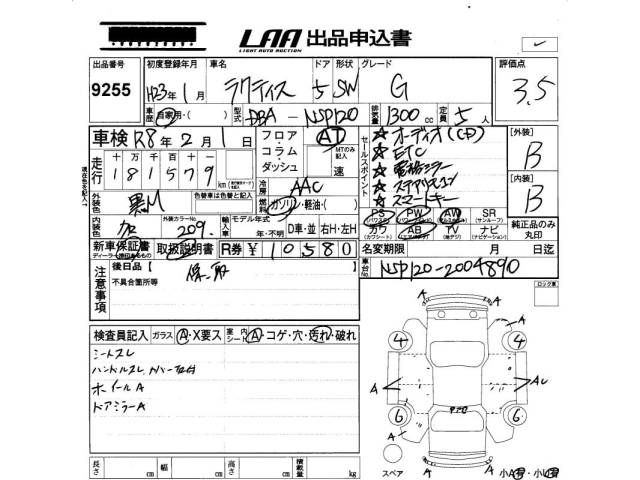 LAA 出品申込書
LIGHT AUTO AUCTION
出品番号 初度登録年月 車名 ドア 形状 グレード 評価点
9255 H23年1月 ラクティス 5 SW G 3.5
車歴 自家用・( ) 型式 DBA-NSP120 排気量 1300cc 定員 5人
車検 R8年2月1日
フロア・コラム・ダッシュ AT MTのみ記入 速
走行 十万千百十
181579 km
冷房 AAC
燃料 ガソリン・軽油・( )
外装色 黒M 色替車は色替と記入
内装色 外装カラーNo. 209
輸入車 モデル年式 年・不明 D車・並 右H・左H
新車保証書 ディーラー捺印あるもの 取扱説明書 R券 ¥10580
セールスポイント
★ オーディオ(CD)
★ ETC
★ 電格ミラー
★ ステアリモコン
★ スマートキー
[外装] B
[内装] B
PS PW AW SR (サンルーフ)
カワ (カワシート) AB TV (地デジ) ナビ (ナビゲーション)
純正品のみ丸印
名変期限 月 日迄
車台No. NSP120-2004890
ロック車
注意事項 後日品【
不具合箇所等
検査員記入 ガラス A・X要ス 室内 シート A・コゲ・穴・汚れ・破れ
シートスレ
ホイールA
ドアミラーA
A A
4 4
A A
6 6
A A
スペア 小A・小U
長さ cm 幅 cm 高さ cm 積載量 kg